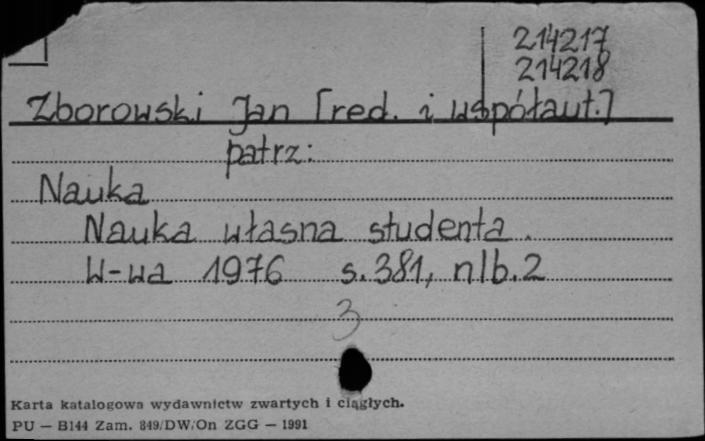 214217
214218
Zborowski Jan [red. i współaut.]
patrz:
Nauka
Nauka własna studenta.
W-wa 1976 s. 381, nlb. 2
3
Karta katalogowa wydawnictw zwartych i ciągłych.
PU — B144 Zam. 849/DW/On ZGG — 1991